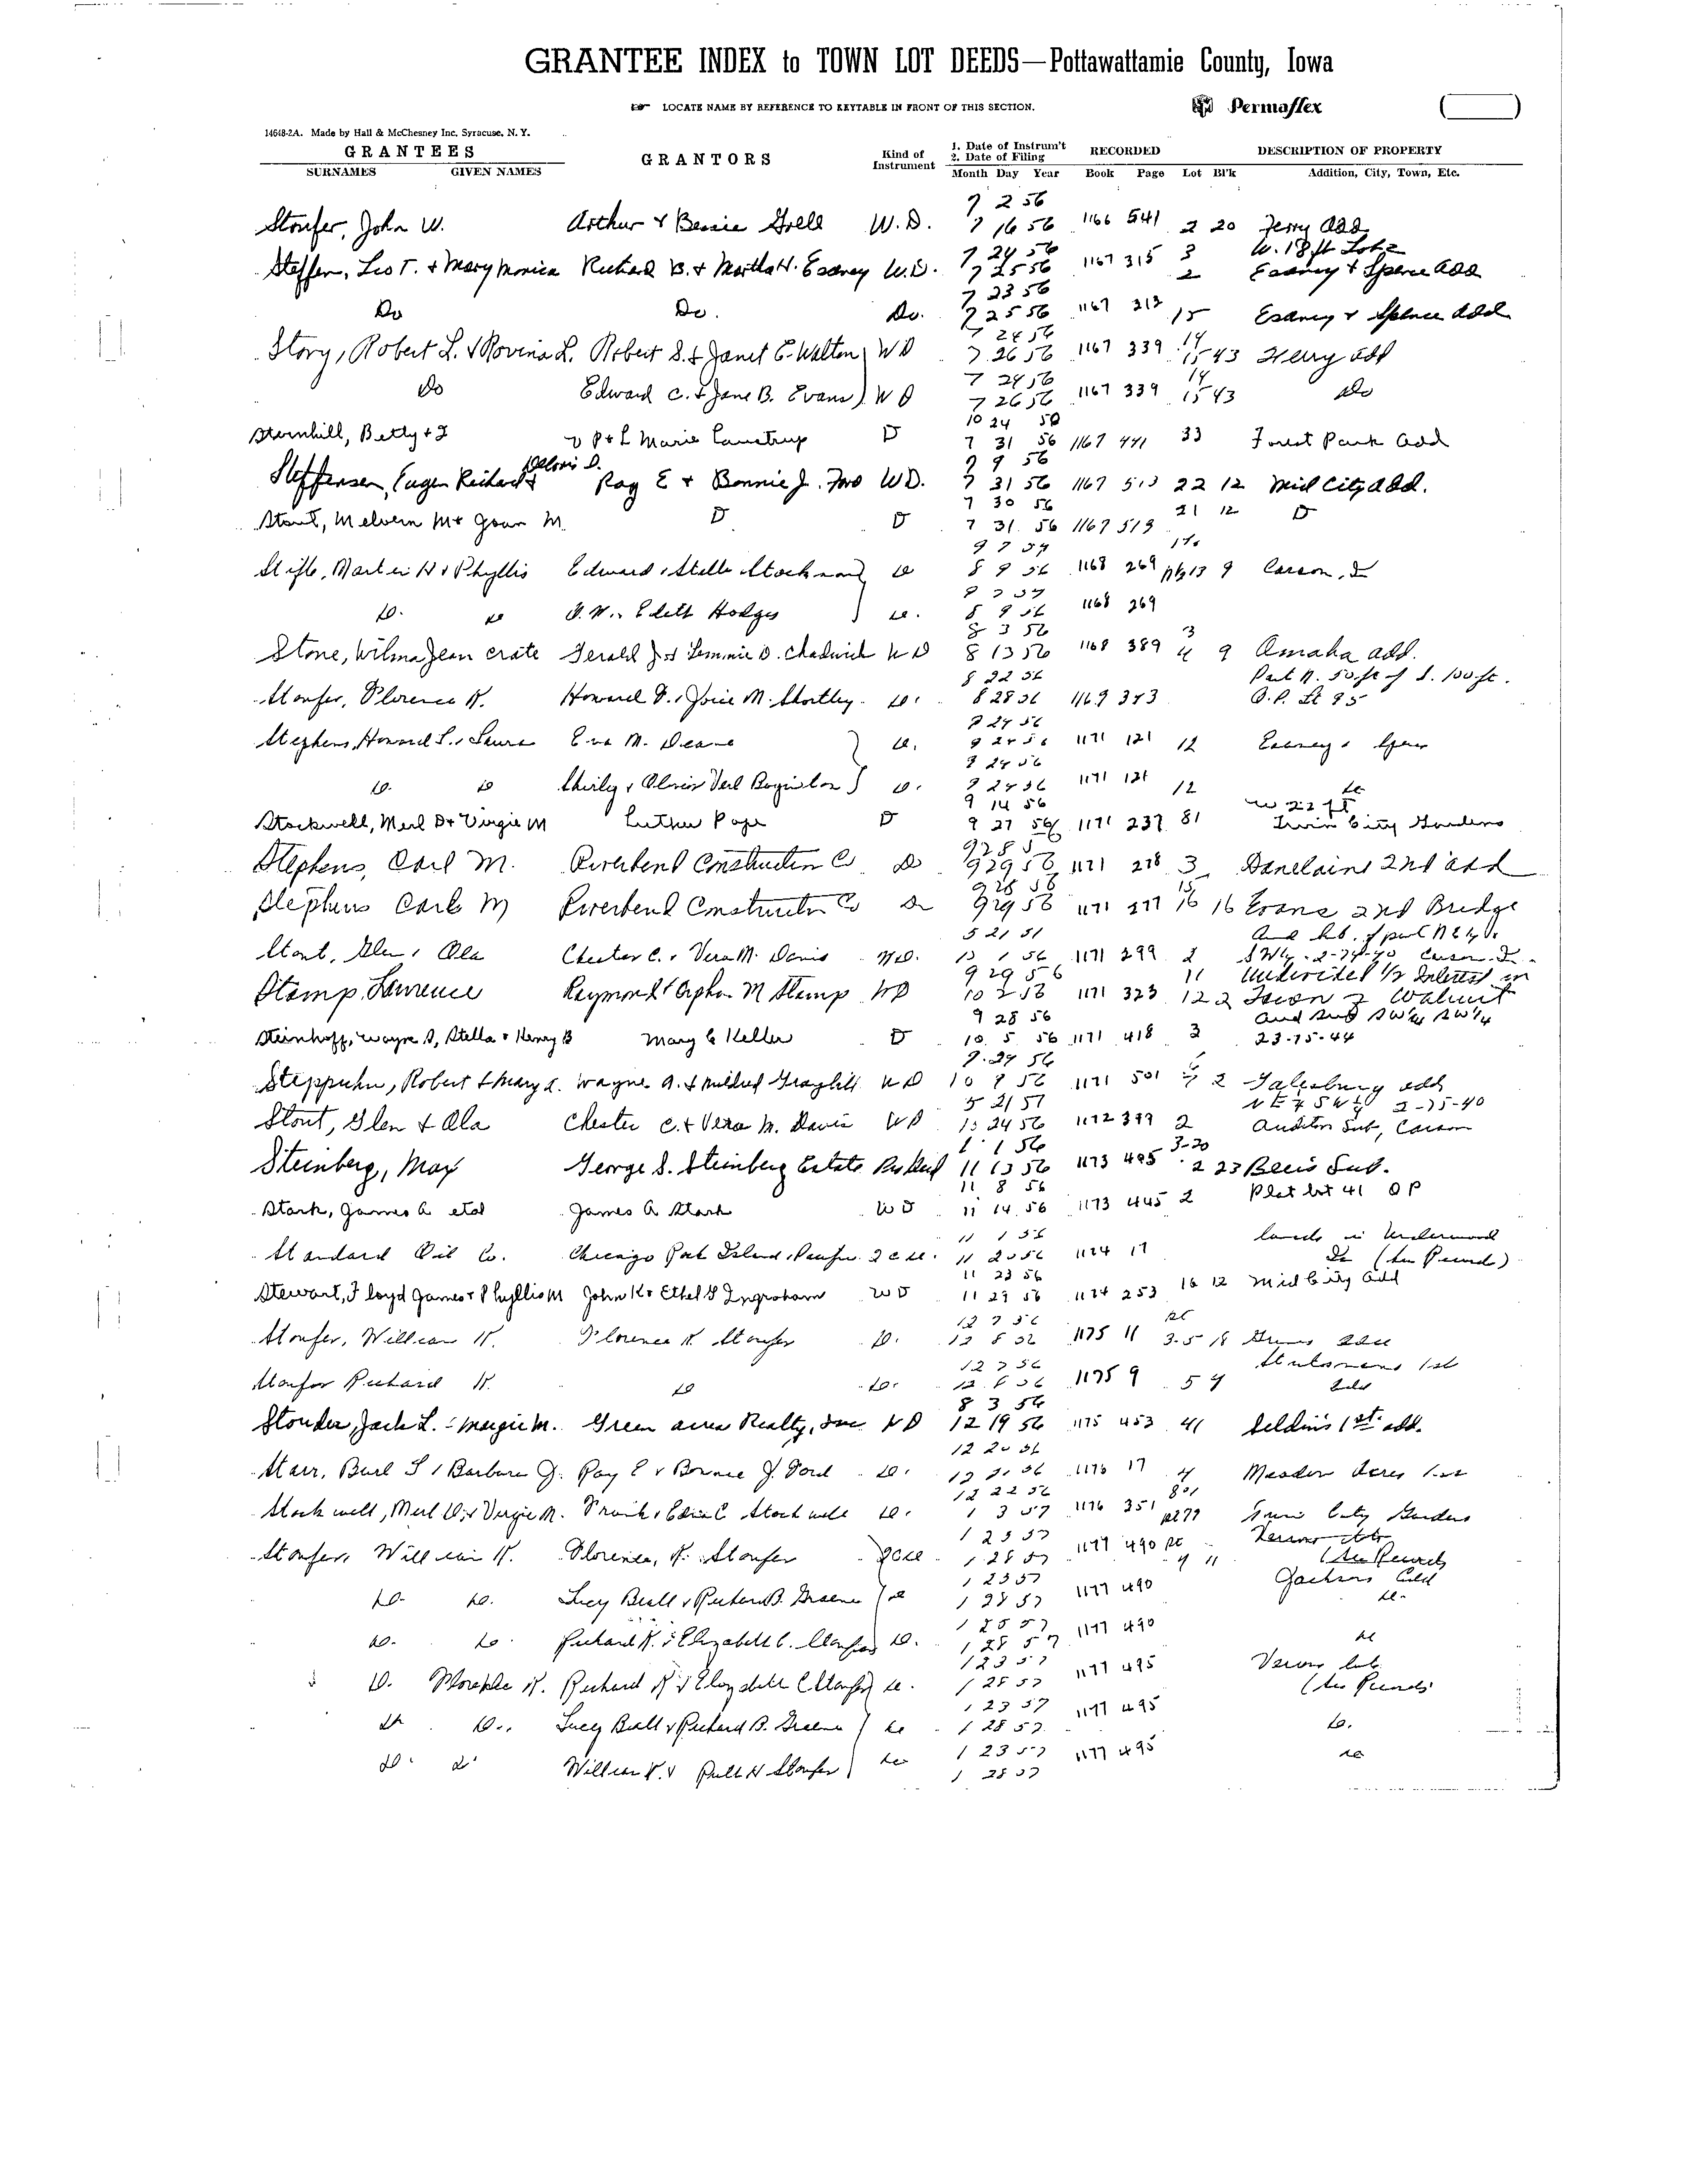 GRANTEE INDEX to TOWN LOT DEEDS—Pottawattamie County, Iowa
LOCATE NAME BY REFERENCE TO KEYTABLE IN FRONT OF THIS SECTION. Permaflex
14648-2A. Made by Hall & McChesney Inc, Syracuse, N. Y.
GRANTEES GRANTORS Kind of Instrument 1. Date of Instrum't 2. Date of Filing RECORDED DESCRIPTION OF PROPERTY
SURNAMES GIVEN NAMES Month Day Year Book Page Lot Bl'k Addition, City, Town, Etc.
7 2 56
Stoufer, John W. Arthur & Bessie Grell W.D. 7 16 56 1166 541 2 20 Ferry Add
7 24 56 W. 18 ft Lot 2
Steffen, Leo T. & Mary Monica Richard B. & Martha H. Esancy W.D. 7 25 56 1167 315 3 2 Esancy & Spence Add
7 23 56
Do Do. Do. 7 25 56 1167 313 15 Esancy & Spence Add
7 24 56 14
Story, Robert L. & Rovena L. Robert S. & Janet E. Walton WD 7 26 56 1167 339 15 43 Ferry Add
7 24 56 14
Do Edward C. & Jane B. Evans) WD 7 26 56 1167 339 15 43 Do
10 24 50
Sternhill, Betty & I V P & L Marie D 7 31 56 1167 441 33 Forest Park Add
Deloris D. 7 9 56
Steffensen, Eugen Richard & Ray E & Bonnie J. Ford WD. 7 31 56 1167 513 22 12 Mid City Add.
7 30 56 21 12 D
Stout, Melvern M & Joan M. D D 7 31 56 1167 519
9 7 54
Martin H & Phyllis Edward & Stella Stockman 8 9 56 1168 269 13 9 Carson, Ia
Do. Do & Edith Hodges Do. 8 9 56 1168 269
8 3 56 3
Stone, Wilma Jean Crate Gerald J & Lemmie D. Chadwick WD 8 13 56 1168 389 4 9 Omaha add.
8 22 56 Part N. 50 ft of S. 100 ft.
Stoufer, Florence K. Howard F. & Joice M. Shortley Do. 8 28 56 1169 343 O.P. Lt 95
9 24 56
Stephens, Howard L. & Laura Eva M. Deane Do. 9 24 56 1171 121 12 Esancy &
9 24 56
Do. Do Shirly & Verl Boynton Do. 9 24 56 1171 121 12 Do
9 14 56 W 22 ft
Stockwell, Merl D & Virgie M Luther Pope D 9 27 56 1171 237 81 Twin City Gardens
9 28 5
Stephens, Carl M. Riverbend Construction Co Do 9 29 56 1171 278 3 Danelains 2nd add
9 28 56 15
Stephens Carl M Riverbend Construction Co Do 9 29 56 1171 277 16 16 Evans 2nd Bridge
5 21 51 Aud Sub. of part
Stout, Glen & Ola Chester C. & Vera M. Davis WD. 10 1 56 1171 299 2 Carson Ia.
9 29 56 11 Undivided 1/2 Interest in
Stamp, Lawrence Raymond & Orpha M Stamp WD 10 2 56 1171 323 12 2 Town of Walnut
9 28 56 Aud Sub SW¼ SW¼
Steinhoff, Wayne D, Stella & Henry B Mary C Keller D 10 5 56 1171 418 3 23-75-44
9 24 56
Steppuhn, Robert & Mary L. Wayne A. & Mildred Graybill WD 10 9 56 1171 501 2 Galesburg add
5 21 51 NE¼ SW¼ 2-75-40
Stout, Glen & Ola Chester C. & Vera M. Davis WD 10 24 56 1172 399 2 Auditor Sub, Carson
1 1 56 3-20
Steinberg, Max George S. Steinberg Estate 11 13 56 1173 495 2 23 Beers Sub.
11 8 56
Stark, James A etal James A Stark WD 11 14 56 1173 445 2 Plat lot 41 OP
11 1 56 lands in Underwood
Standard Oil Co. Chicago Rock Island & Pacific 11 20 56 1174 17 Ia (See Record)
11 23 56
Stewart, Floyd James & Phyllis M John K & Ethel G Ingraham WD 11 29 56 1174 253 16 12 Mid City Add
12 7 56
Stoufer, William K. Florence K. Stoufer Do. 12 8 56 1175 11 3-5 18 Grimes add
12 7 56 Stutsmans 1st
Stoufer Richard K. Do Do. 12 8 56 1175 9 5 4 add
8 3 56
Stouder, Jack L. & Margie M. Green acres Realty, Inc WD 12 19 56 1175 453 41 Seldins 1st add.
12 20 56
Starr, Burl S & Barbara J. Ray E & Bonnie J. Ford Do. 12 21 56 1176 17 4 Meadow Acres 1st
12 22 56 801
Stockwell, Merl D. & Virgie M. Frank & Edna C Stockwell Do. 1 3 57 1176 351 pt 79 Twin City Gardens
1 23 57 Various lots
Stoufer, William K. Florence K. Stoufer 1 28 57 1177 490 pt 4 11 (See Record)
1 23 57 Jacksons Add
Do. Do. Lucy Beall & Richard B. Greene Do 1 28 57 1177 490 Do.
1 23 57
Do. Do. Richard K. & Elizabeth C. Stoufer Do. 1 28 57 1177 490 Do
1 23 57 Various lots
Do. Florence K. Richard K & Elizabeth C Stoufer Do. 1 28 57 1177 495 (See Record)
1 23 57
Do. Do.. Lucy Beall & Richard B. Greene Do 1 28 57 1177 495 Do.
Do. Do William K. & Ruth H Stoufer Do 1 23 57 1177 495 Do
1 28 57